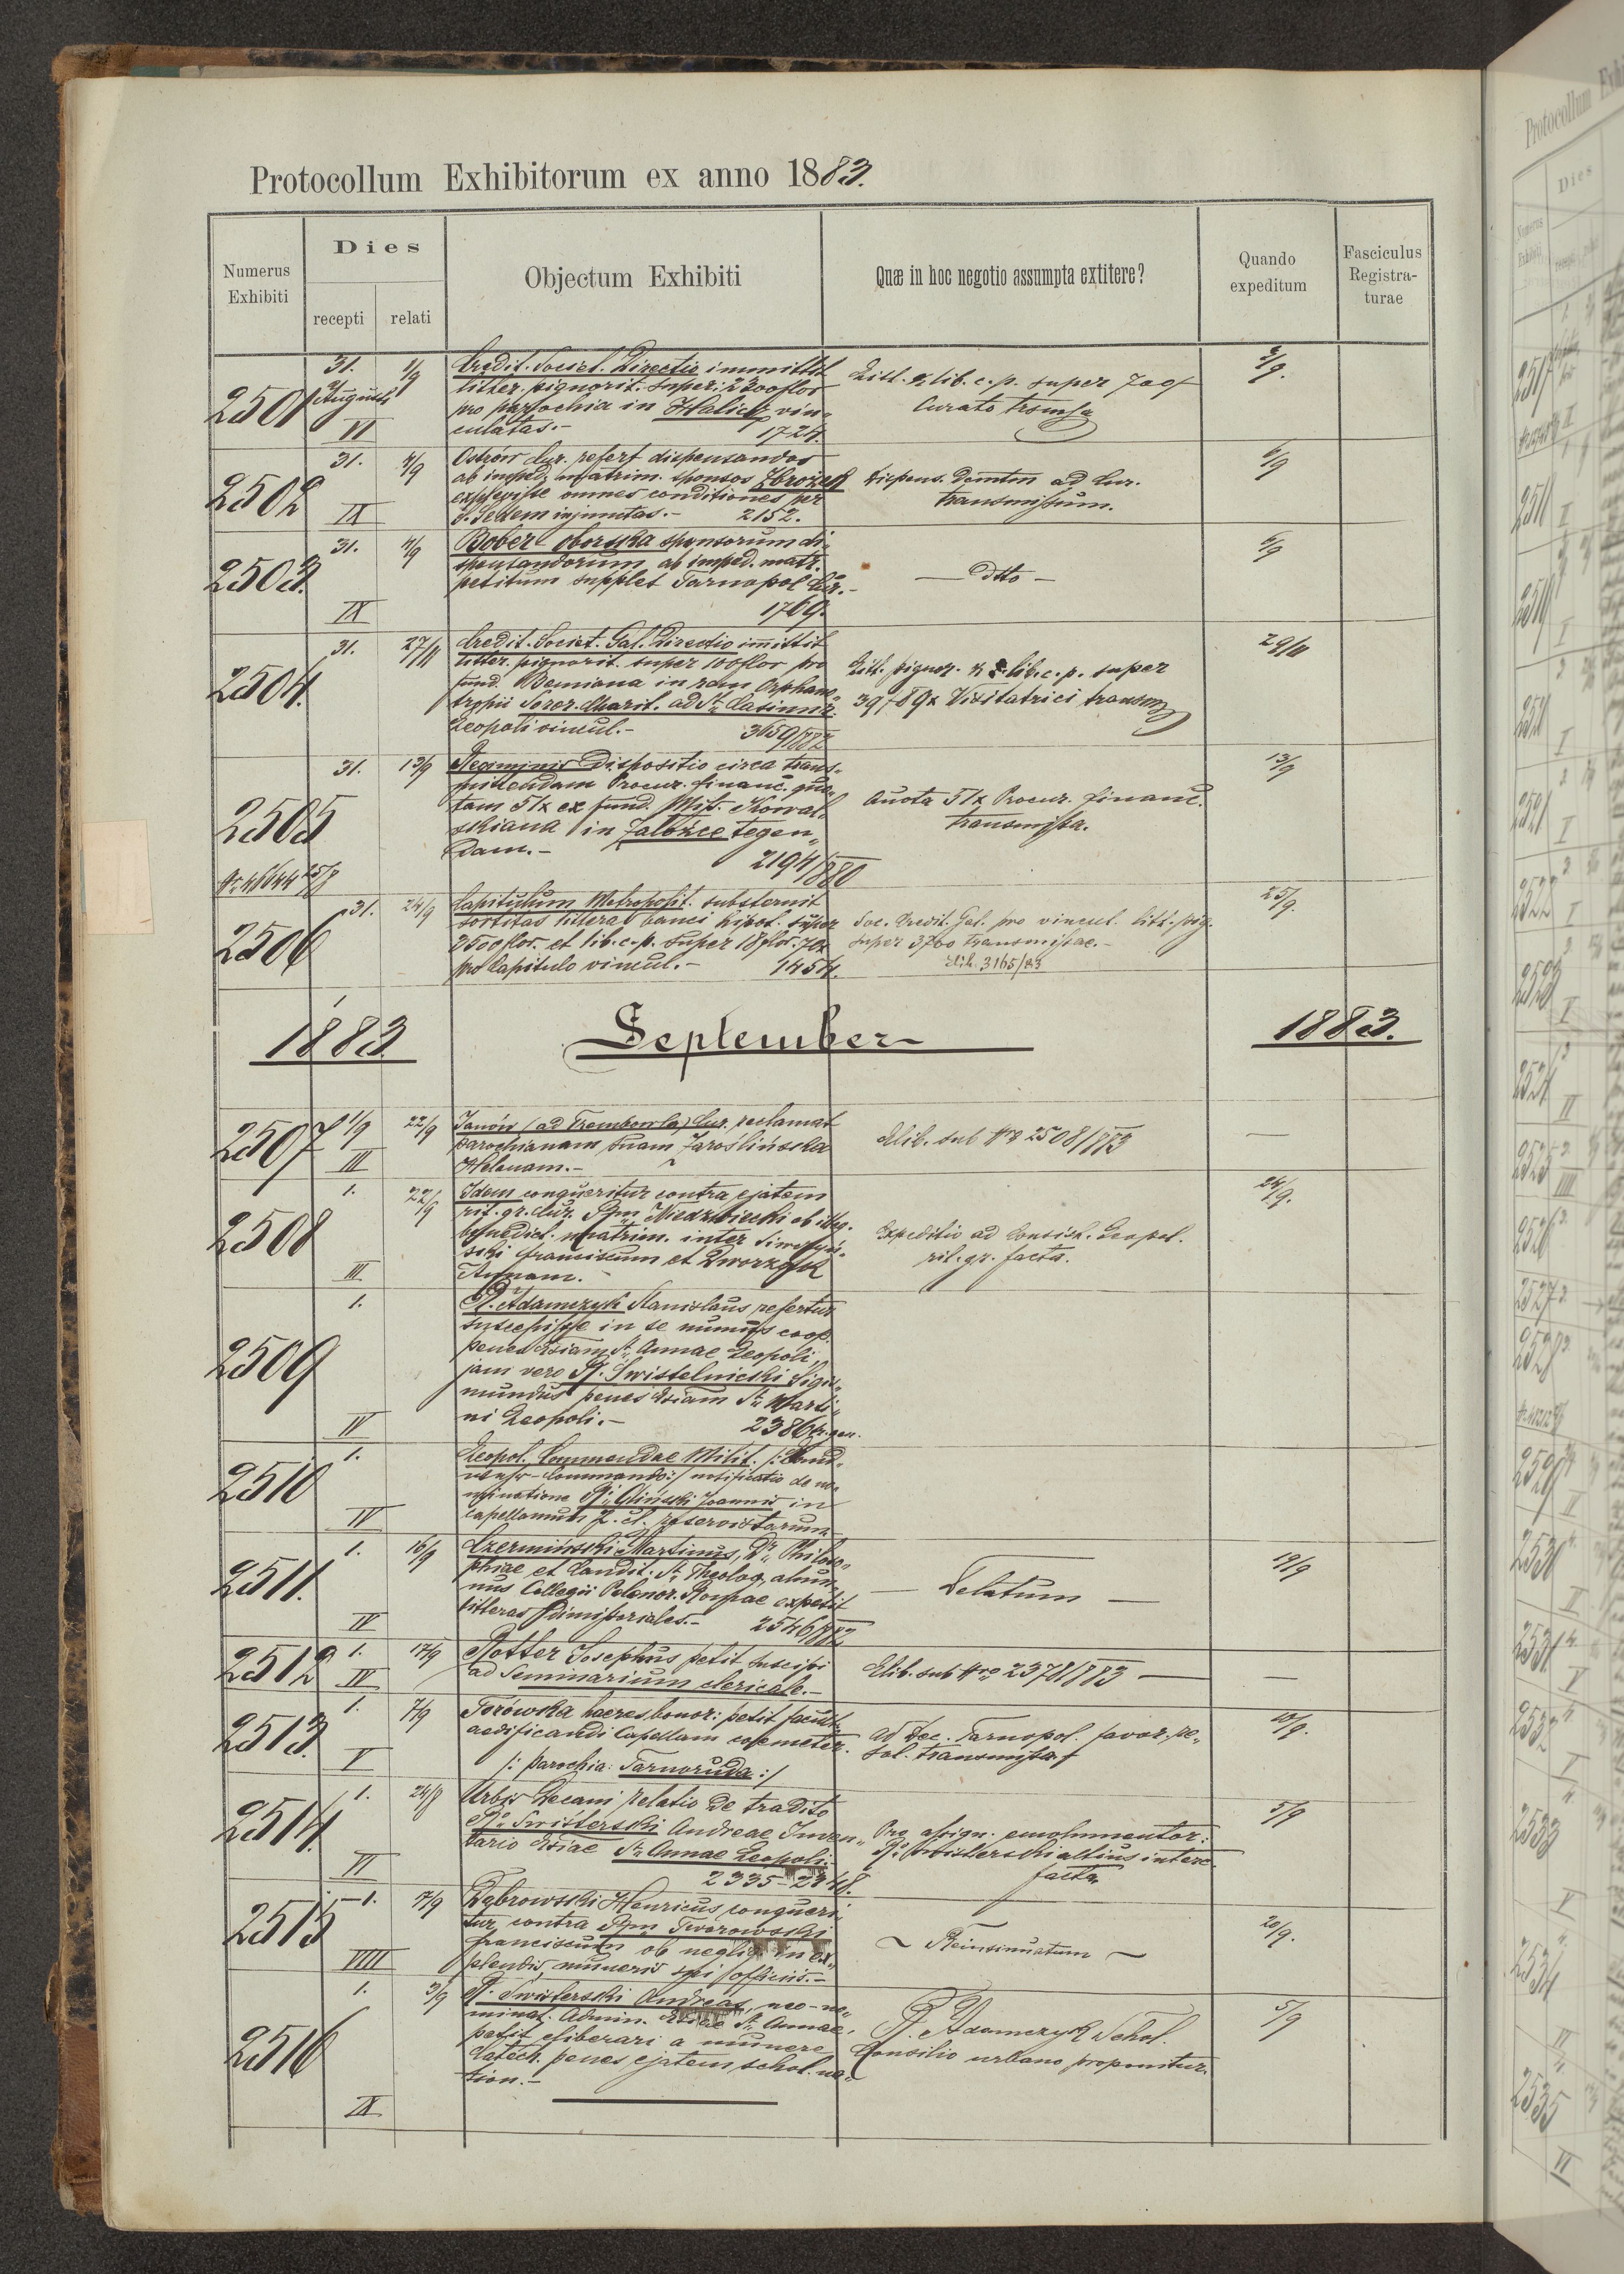 Protocollum Exhibitorum ex anno 1883.
Numerus Exhibiti
Dies
recepti
relati
Objectum Exhibiti
Quæ in hoc negotio assumpta extitere?
Quando expeditum
Fasciculus Registra-
turae
2501
31.
Augusti
VI
1/9
Credit. Societ. Directio immittit
litter. pignorit. super: 2300 flor
pro parochia in Halicz vin„
culatas.- 1724.
Litt. & lib. c. p. super 700f
Curato
2502
31.
IX
4/9
Ostrów Cur. refert dispensandos
ab imped. matrim. sponsos Zbrożek
explevisse omnes conditiones per
S. Sedem injunctas.- 2152.
Dispens. Domtm ad Cur.
transmissum.
6/9
2503.
31.
IX
4/9
Bober Oborska sponsorum di„
spensandorum ab imped. matr.
petitum supplet Tarnopol Cur.-
1769.
— dtto —
6/9
2504.
31.
27/11
Credit. Societ. Gal. Directio imittit
litter. pignorit. super 100 flor pro
fund. Bemiana in rem Orphano„
trophii Soror. Charit. ad St. Casimir.
Leopoli vincul.- 3659/882
Litt. pignor. & lib. c. p. super
39 f 89x Visitatrici transm
29/11
2505
Nr. 46644 25/8
31.
13/9
Regiminis Dispositio circa trans„
mittendam Procur. financ. quo„
tam 51x ex fund. Miss. Kowal„
skiana in Załoźce tegen„
dam.- 2194/880
Quota 51x Procur. financ.
transmissa.
13/9
2506
31.
24/9
Capitulum Metropolit. substernit
sortitas litteras banci hipot. super
2500 flor. et lib. c. p. super 18 flor. 70x
pro Capitulo vincul.- 1454.
Soc. Credit. Gal. pro vincul. litt. pig.
super 3700 transmissae.-
Elib. 3165/83
25/9.
1883.
September
1883.
2507
1/9
III
22/9
Janów (ad Trembowla) Cur. reclamat
parochianam suam Jaroslińska
Helenam.-
Elib. sub Nro 2508/883
—
2508
1.
III
22/9
Idem conqueritur contra ejatem
rit. gr. Cur. Rm Niedzwiecki ob illeg.
benedict. matrim. inter
ski Franciscum et Dworzak
Annam.-
Expeditio ad Consist. Leopol.
rit. gr. facta.
24/9.
2509
1.
IV
R. Adamczyk Stanislaus refertur
suscepisse in se munus coop.
penes Ecclesiam St. Annae Leopoli
jam vero R. Swistelnicki Sigis„
mundus penes Ecclesiam St. Marti„
ni Leopoli.- 2386
2510
1.
IV
Leopol. Commendae Milit. /:Land„
wehr-Commando:/ notificatio de no„
minatione R. Gliński Joannis in
Capellanum 2. cl. reservistarum
2511.
1.
IV
16/9
Czermiński Martinus, Dr. Philoso„
phiae et Candit. St. Theolog. alum„
nus Collegii Polonor. Romae expetit
litteras dimissoriales.- 2546/882
— Delatum —
19/9
2512
1.
IV
17/9
Rotter Josephus petit suscipi
ad Seminarium clericale.-
Elib. sub Nro 2378/883 —
—
2513.
1.
V
7/9
Torówska haeres bonor: petit facult.
aedificandi Capellam coemeter.
/: parochia: Tarnoruda :/
ad Dec. Tarnopol. favor. re„
sol. transmissa
10/9.
2514.
1.
VI
24/8
Urbis Decani relatio de tradito
R. Swisterski Andreae Inven„
tario Ecclesiae St. Annae Leopoli.-
2335-2348.
Pro assign. emolumentor:
R. Swisterski altius interc.
facta
5/9
2515
1.
VIII
7/9
Dąbrowski Henricus conqueri„
tur contra Rm Tworowski
Franciscum ob neglig. in ex„
plendis muneris sui officiis.-
~ Reinsinuatum ~
20/9.
2516
1.
IX
3/9
R. Swisterski Andreas, neo-no„
minat. Admin. Ecclesiae St. Annae,
petit eliberari a munere
Catech. penes ejatem schol. na„
tion.-
R. Adamczyk Schol.
Consilio urbano proponitur.
5/9
Protocollum
Dies
2521
2522
2531
2533
2534
2535
VI